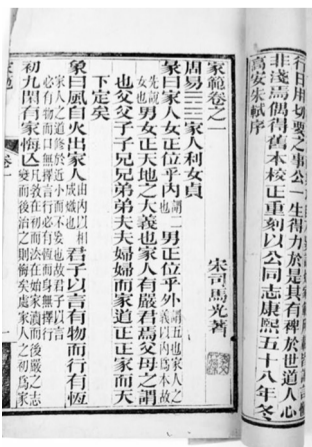 行日用切要之事公一生得力於是其有裨於世道人心
非淺焉偶得舊本校正重刻以公同志康熙五十八年冬
高安朱軾序
家範卷之一
宋司馬光著
周易 家人利女貞
彖曰家人女正位乎內謂二也男正位乎外謂五也家人之義以內為本故
先說女也男女正天地之大義也家人有嚴君焉父母之謂
也父父子子兄兄弟弟夫夫婦婦而家道正正家而天
下定矣
象曰風自火出家人由內以相成熾也君子以言有物而行有恆
家人之道修於近小而不妄也故君子以言
必有物而口無擇言行必有恆而身無擇行
初九閑有家悔亡凡敎在初而法在始家瀆而後嚴之志變而後治之則悔矣處家人之初爲家
家範
卷一
一